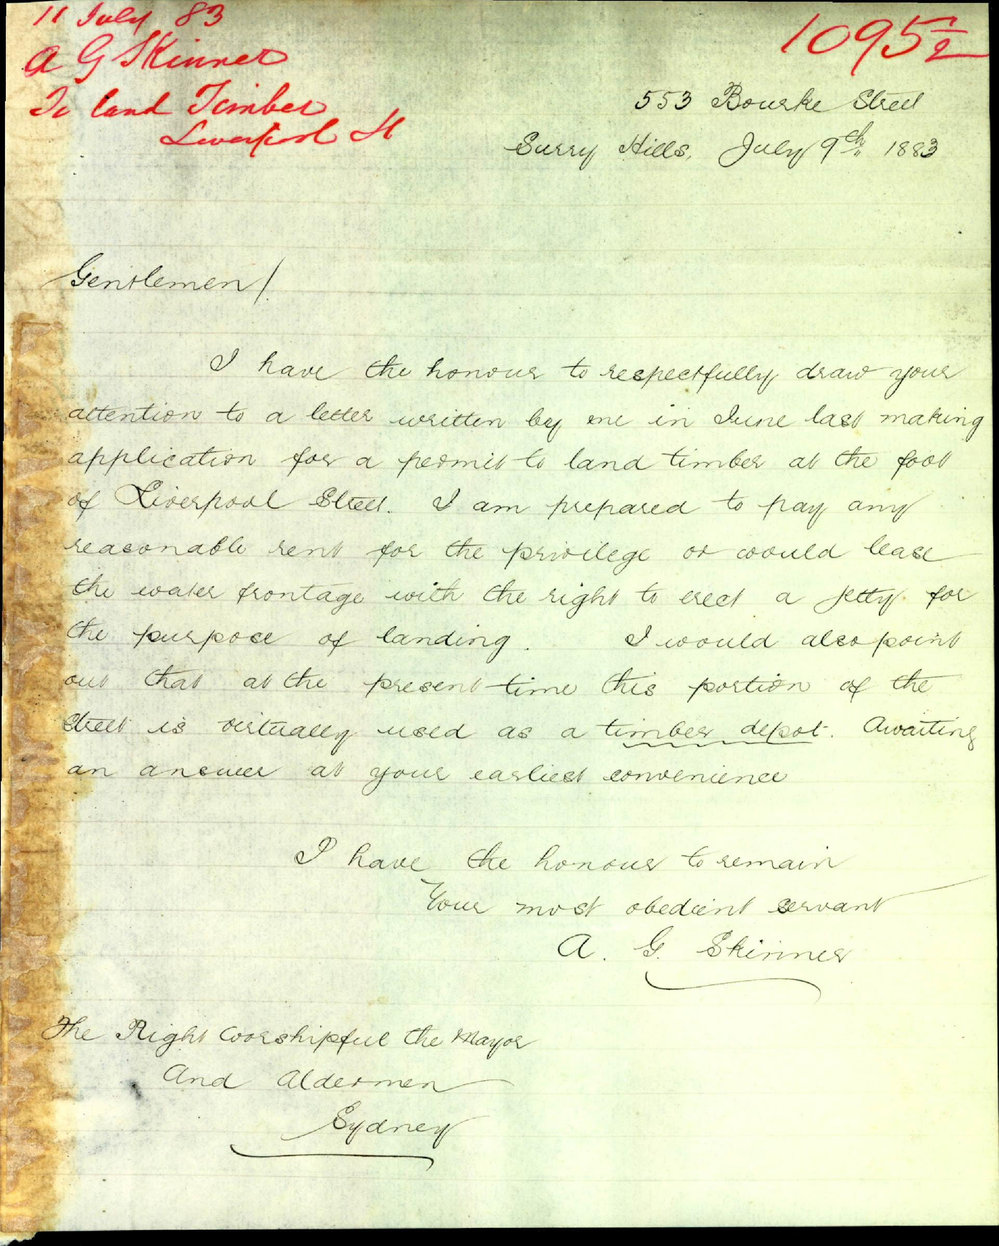 11 July 83
A G Skinner
To land Timber
Liverpool St
1095/2
553 Bourke Street
Surry Hills, July 9th 1883
Gentlemen/.
I have the honour to respectfully draw your
attention to a letter written by me in June last making
application for a permit to land timber at the foot
of Liverpool Street. I am prepared to pay any
reasonable rent for the privilege or would lease
the water frontage with the right to erect a jetty for
the purpose of landing. I would also point
out that at the present time this portion of the
street is virtually used as a timber depot. Awaiting
an answer at your earliest convenience
I have the honour to remain
Your most obedient servant
A. G. Skinner
The Right Worshipful the Mayor
And Aldermen
Sydney